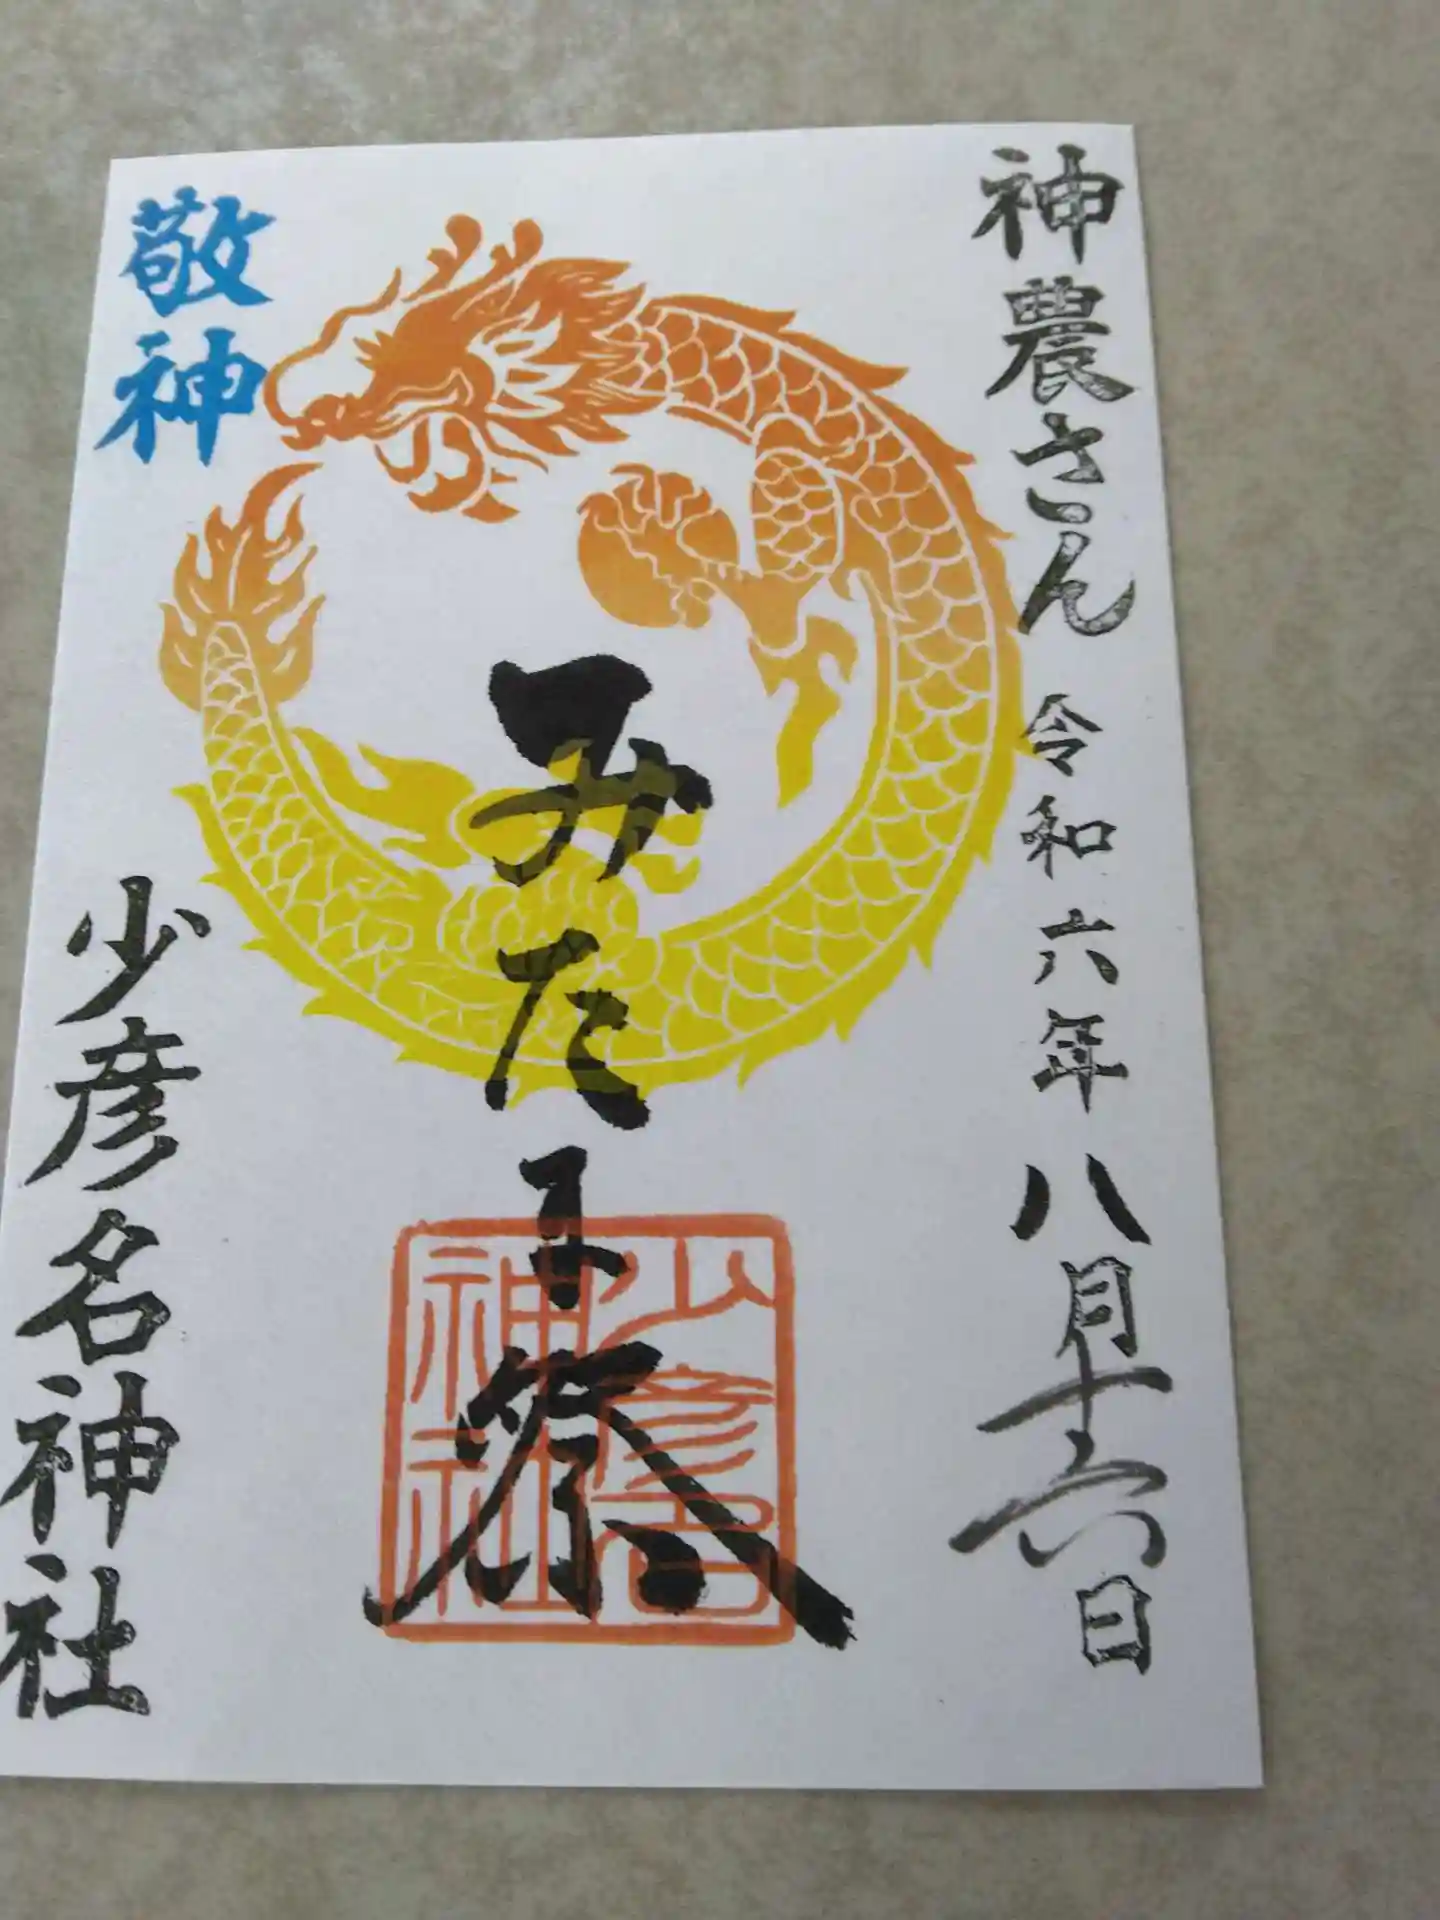 神農さん 令和六年八月十六日
みたま祭
少彦名
神社
敬神
少彦名神社